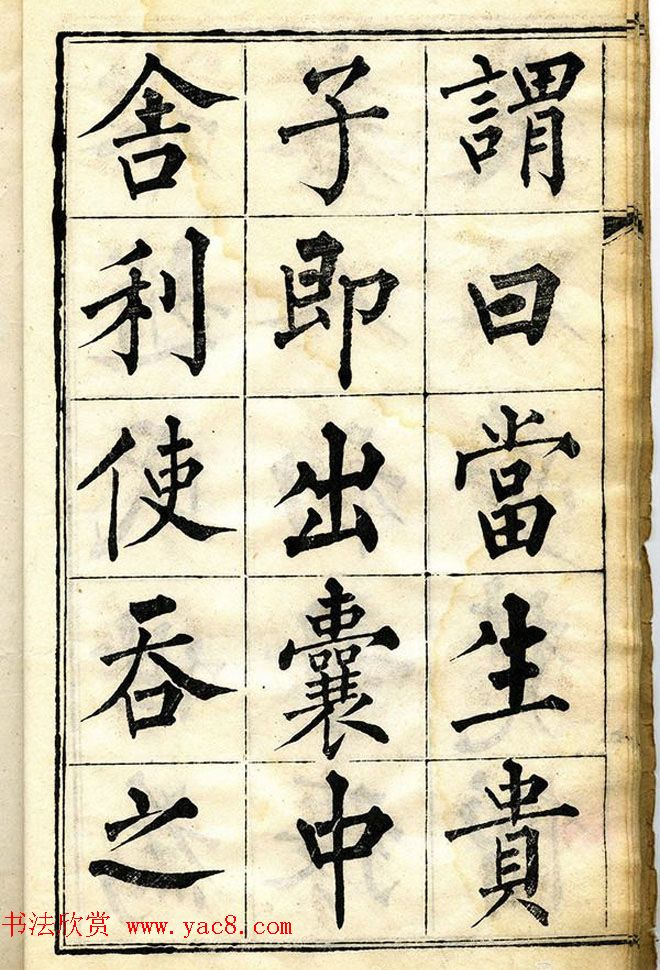 謂曰當生貴
子即出囊中
舍利使吞之
书法欣赏 www.yac8.com